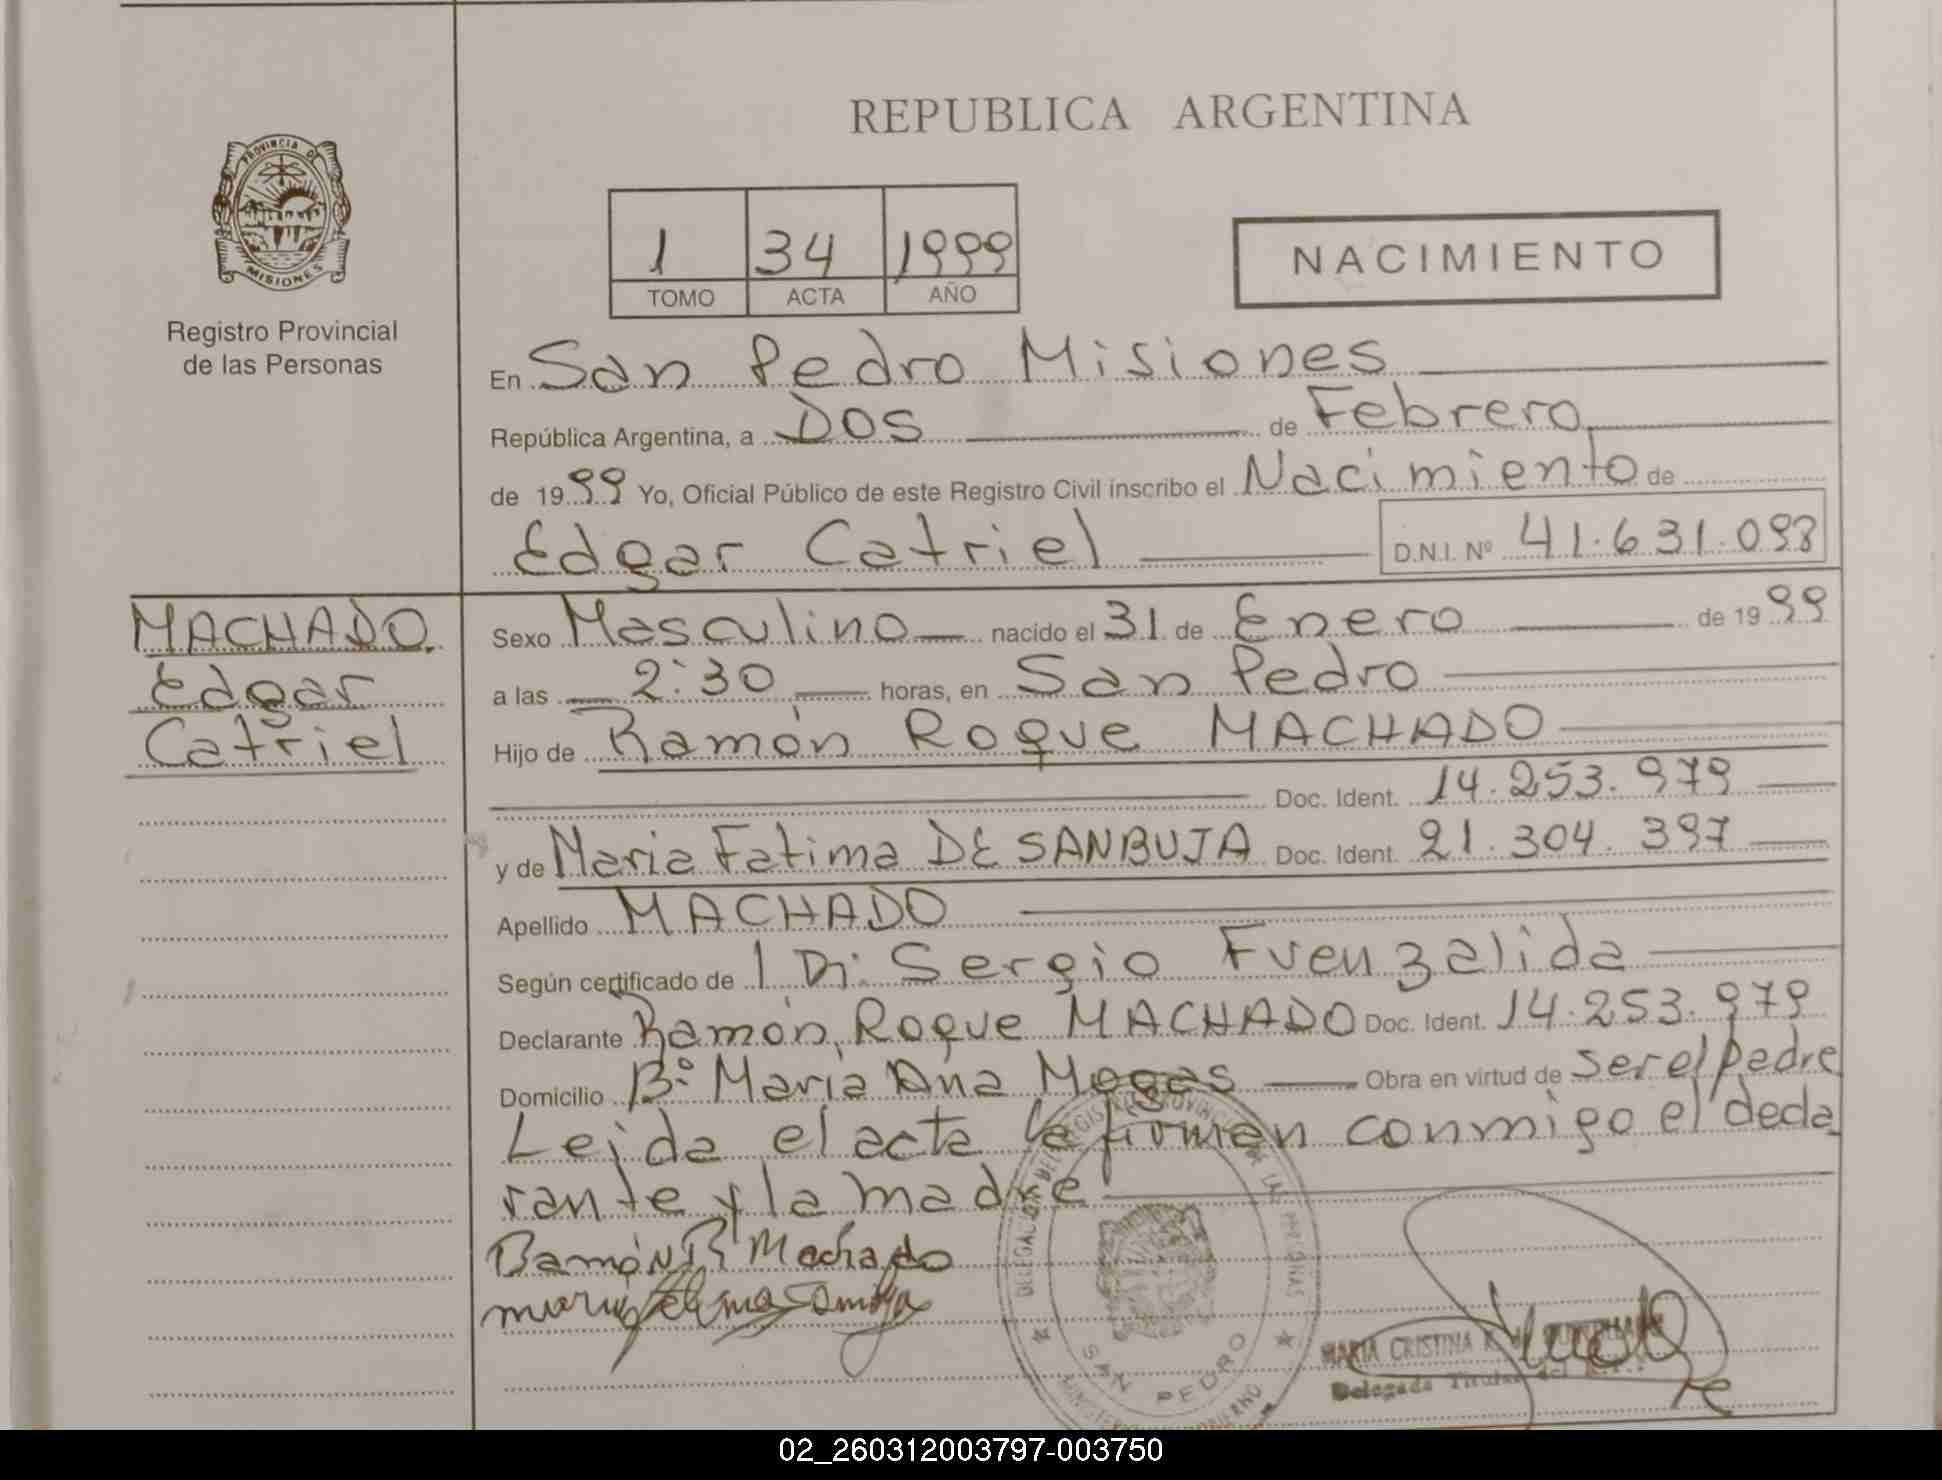 REPUBLICA ARGENTINA
PROVINCIA DE
MISIONES
Registro Provincial
de las Personas
1 34 1999
TOMO ACTA AÑO
NACIMIENTO
En San Pedro Misiones
República Argentina, a Dos de Febrero
de 1999 Yo, Oficial Público de este Registro Civil inscribo el Nacimiento de
Edgar Catriel D.N.I. Nº 41.631.098
MACHADO
Edgar
Catriel
Sexo Masculino nacido el 31 de Enero de 1999
a las 2:30 horas, en San Pedro
Hijo de Ramón Roque MACHADO
Doc. Ident. 14.253.979
y de Maria Fatima DE SANBUJA Doc. Ident. 21.304.397
Apellido MACHADO
Según certificado de l Dr: Sergio Fuenzalida
Declarante Ramón Roque MACHADO Doc. Ident. 14.253.979
Domicilio Bº Maria Ana Mogas Obra en virtud de ser el padre
Leida el acta la firman conmigo el decla
rante y la madre
Ramón R Machado
DELEGACION DEL REGISTRO PROVINCIAL DE LAS PERSONAS
SAN PEDRO
MARIA CRISTINA
Delegada Titular del
02_260312003797-003750